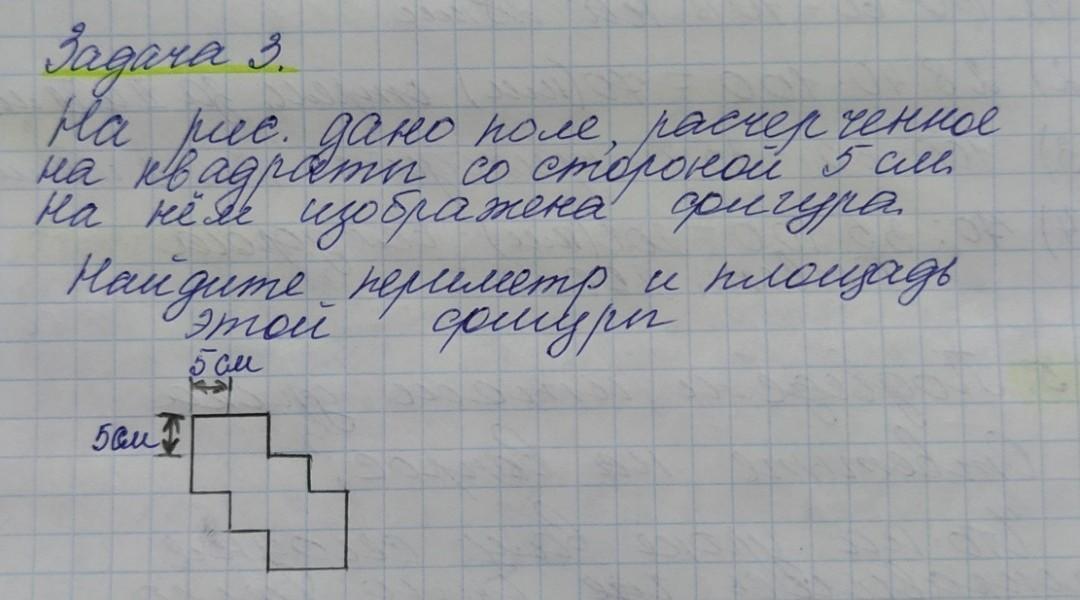 Задача 3.
На рис. дано поле, расчерченное
на квадраты со стороной 5 см.
На нём изображена фигура.
Найдите периметр и площадь
этой фигуры
5 см
5см